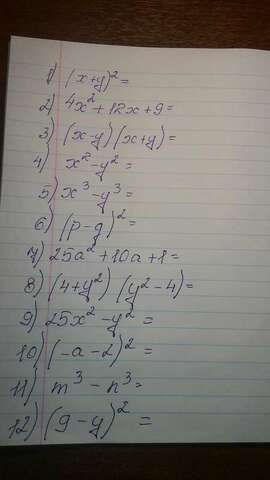 1) (x+y)²=
2) 4x²+12x+9=
3) (x-y)(x+y)=
4) x²-y²=
5) x³-y³=
6) (p-g)²=
7) 25a²+10a+1=
8) (4+y²)(y²-4)=
9) 25x²-y²=
10) (-a-2)²=
11) m³-n³=
12) (9-y)²=